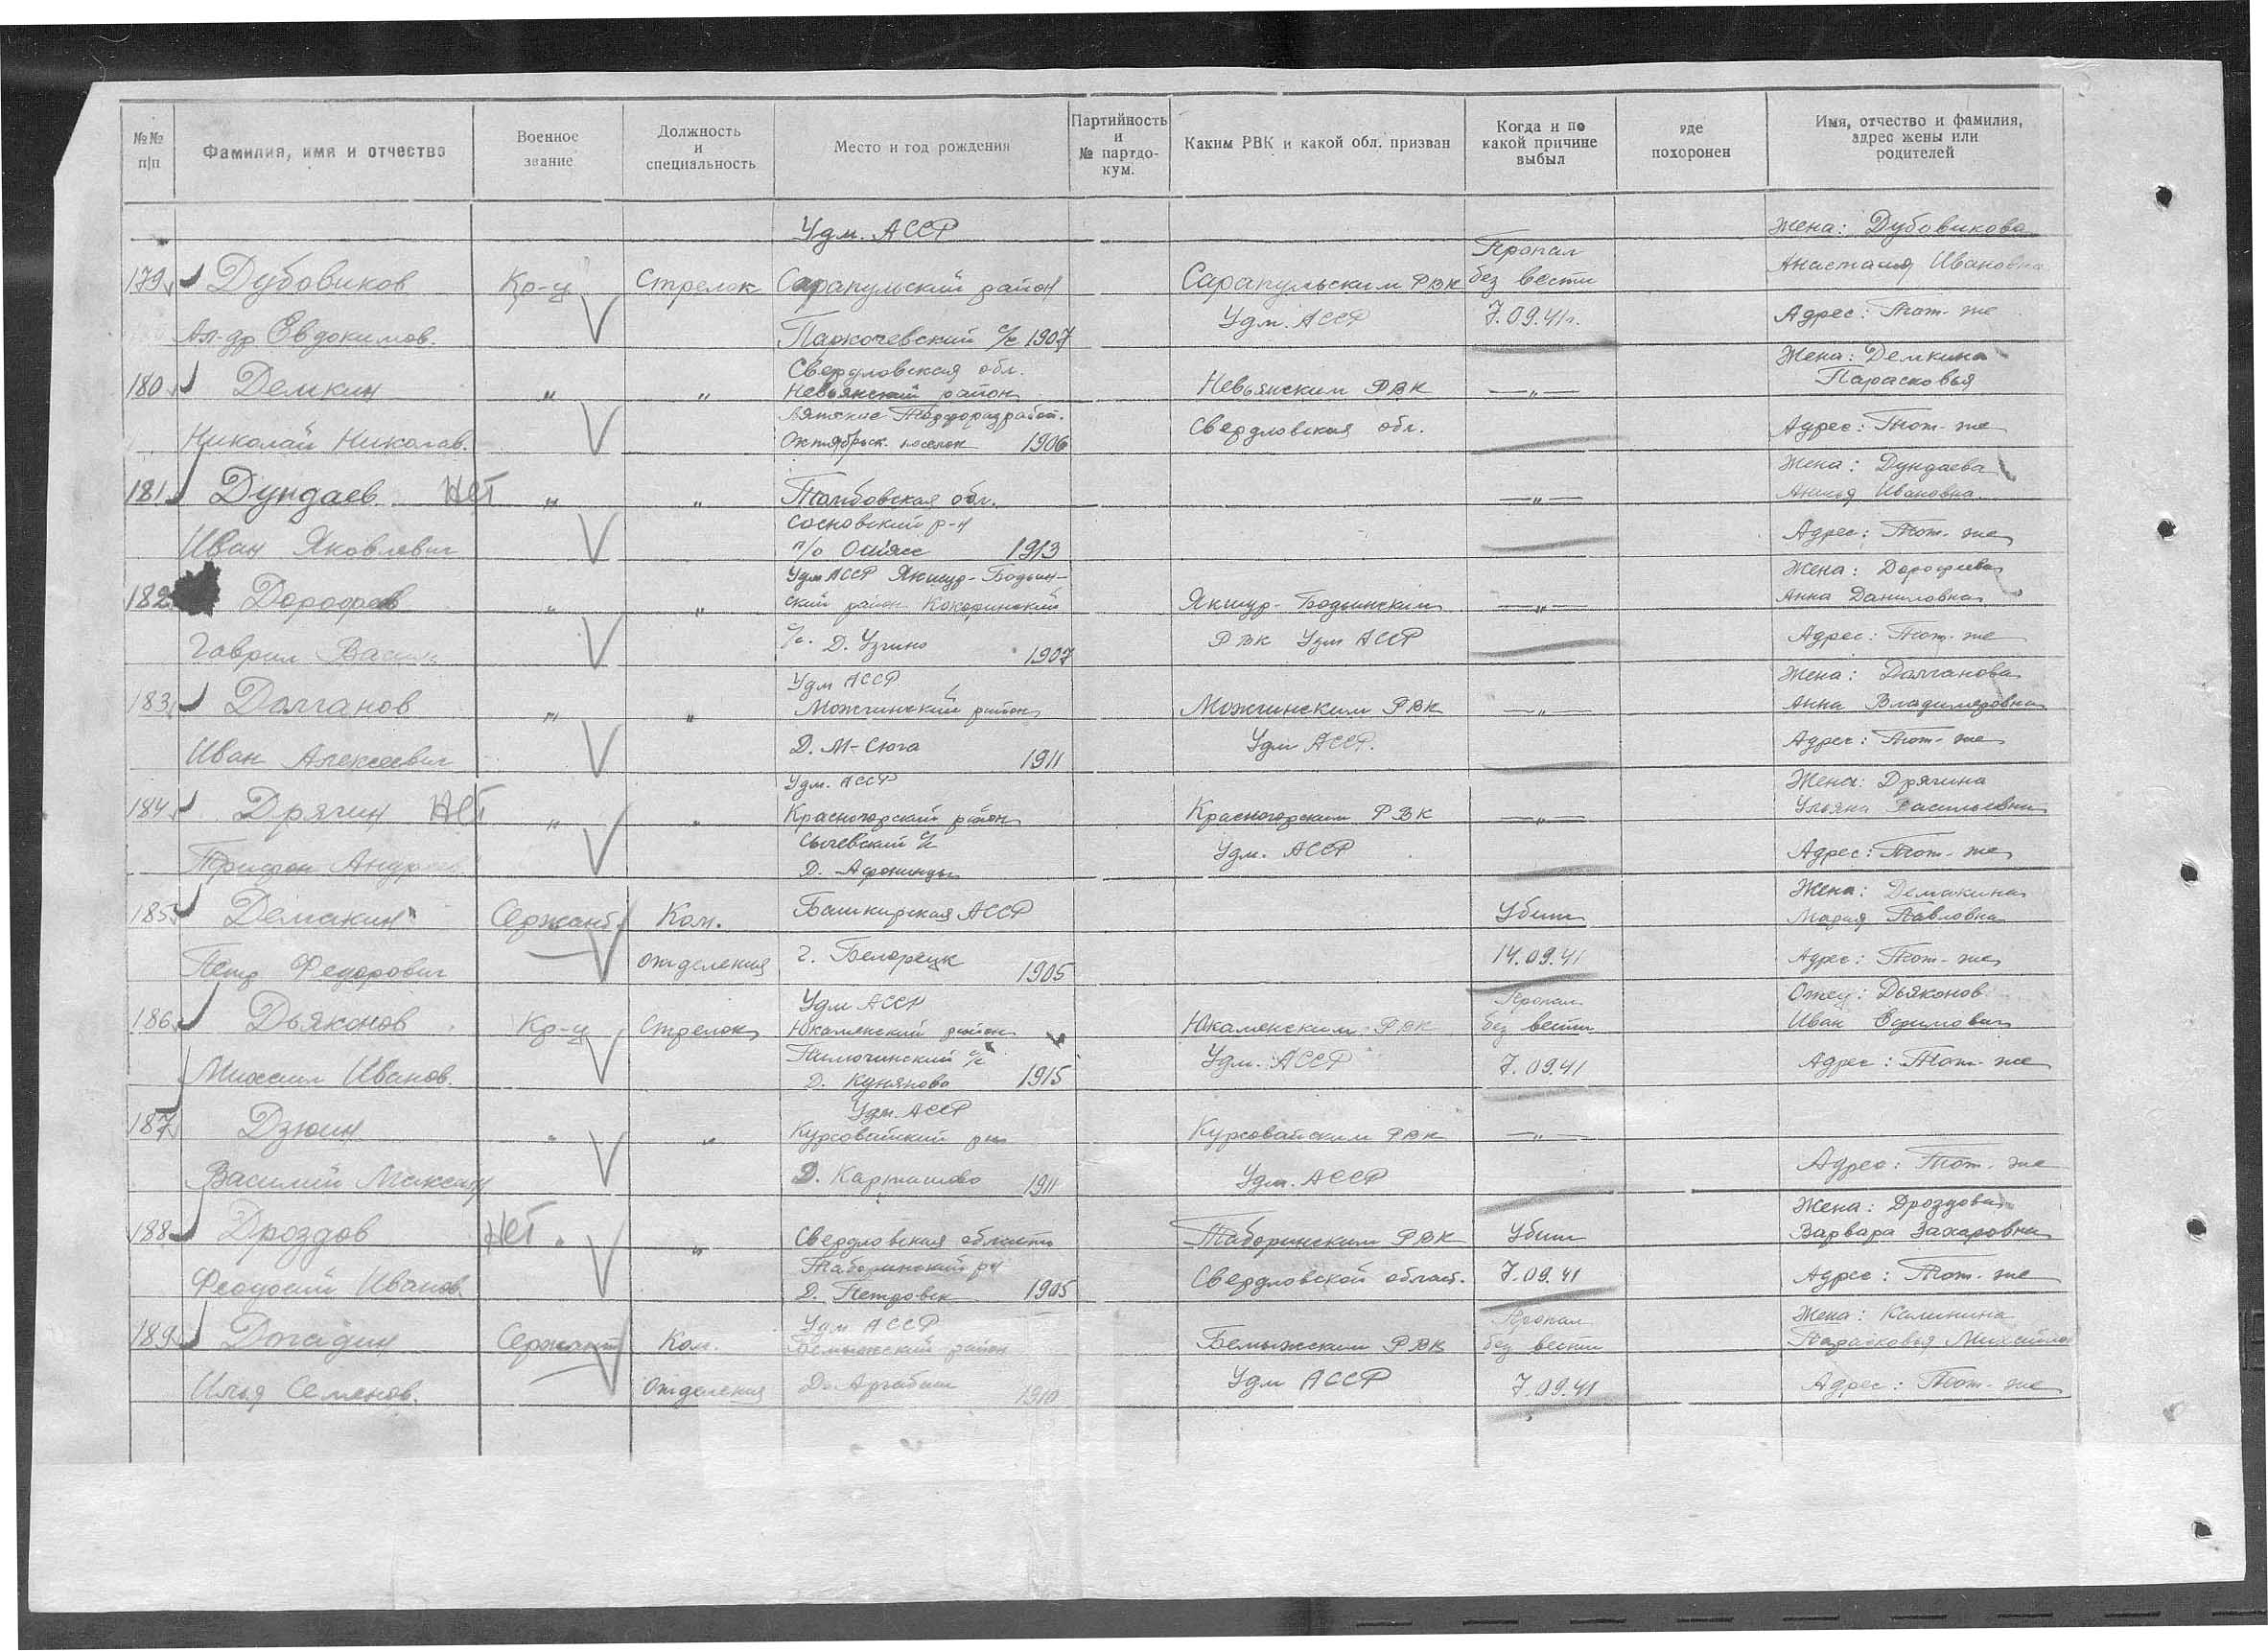 №№ п/п
Фамилия, имя и отчество
Военное звание
Должность и специальность
Место и год рождения
Партийность и № партдокум.
Каким РВК и какой обл. призван
Когда и по какой причине выбыл
где похоронен
Имя, отчество и фамилия, адрес жены или родителей
Удм. АССР
Жена: Дубовикова
Пропал
179 Дубовиков Кр-ц Стрелок Сарапульский район Сарапульским РВК без вести Анастасия Ивановна
Ал-др Евдокимов. с/с 1907 Удм. АССР 7.09.41г. Адрес: Тот-же
Свердловская обл. Жена: Демкина
180 Демкин " " Невьянский район Невьянским РВК —"— Парасковья
Николай Николав. Октябрьск. поселок 1906 Свердловская обл. Адрес: Тот-же
Жена: Дундаева
181 Дундаев Нет " " Тамбовская обл. —"— Ивановна
Сосновский р-н
Иван Яковлевич п/о 1913 Адрес: Тот-же
Удм АССР Якшур-Бодьин- Жена: Дорофеева
182 Дорофеев " " ский район Кокоринский Якшур-Бодьинским —"— Анна Даниловна
Гаврил с/с. Д. Узгино 1907 РВК Удм АССР Адрес: Тот-же
Удм АССР Жена: Долганова
183 Долганов " " Можгинский район Можгинским РВК —"— Анна Владимировна
Иван Алексеевич Д. М-Сюга 1911 Удм АССР. Адрес: Тот-же
Удм. АССР Жена: Дрягина
184 Дрягин Нет " " Красногорский район Красногорским РВК —"— Ульяна Васильевна
Трифон Андреев Сычевский с/с Удм. АССР Адрес: Тот-же
Д. Афонинцы
Жена: Демакина
185 Демакин Сержант Ком. Башкирская АССР Убит Мария Павловна
Петр Федорович отделения г. Белорецк 1905 14.09.41 Адрес: Тот-же
Удм АССР Пропал Отец: Дьяконов
186 Дьяконов Кр-ц Стрелок Юкаменский район Юкаменским РВК без вести Иван Ефимович
Михаил Иванов. с/с Удм. АССР 7.09.41 Адрес: Тот-же
Д. Куняково 1915
Удм. АССР
187 Дзюин " " Курсовайский р-н Курсовайским РВК —"—
Василий Д. Карташово 1911 Удм. АССР Адрес: Тот-же
Жена: Дроздова
188 Дроздов Нет " " Свердловская область Таборинским РВК Убит Варвара Захаровна
Таборинский р-н
Феодосий Иванов Д. Петровск 1905 Свердловской област. 7.09.41 Адрес: Тот-же
Удм АССР Пропал Жена: Калинина
189 Догадин Сержант Ком. Бемыжский район Бемыжским РВК без вести Парасковья Михайло
Илья Семенов. Отделения Д. 1910 Удм АССР 7.09.41 Адрес: Тот-же